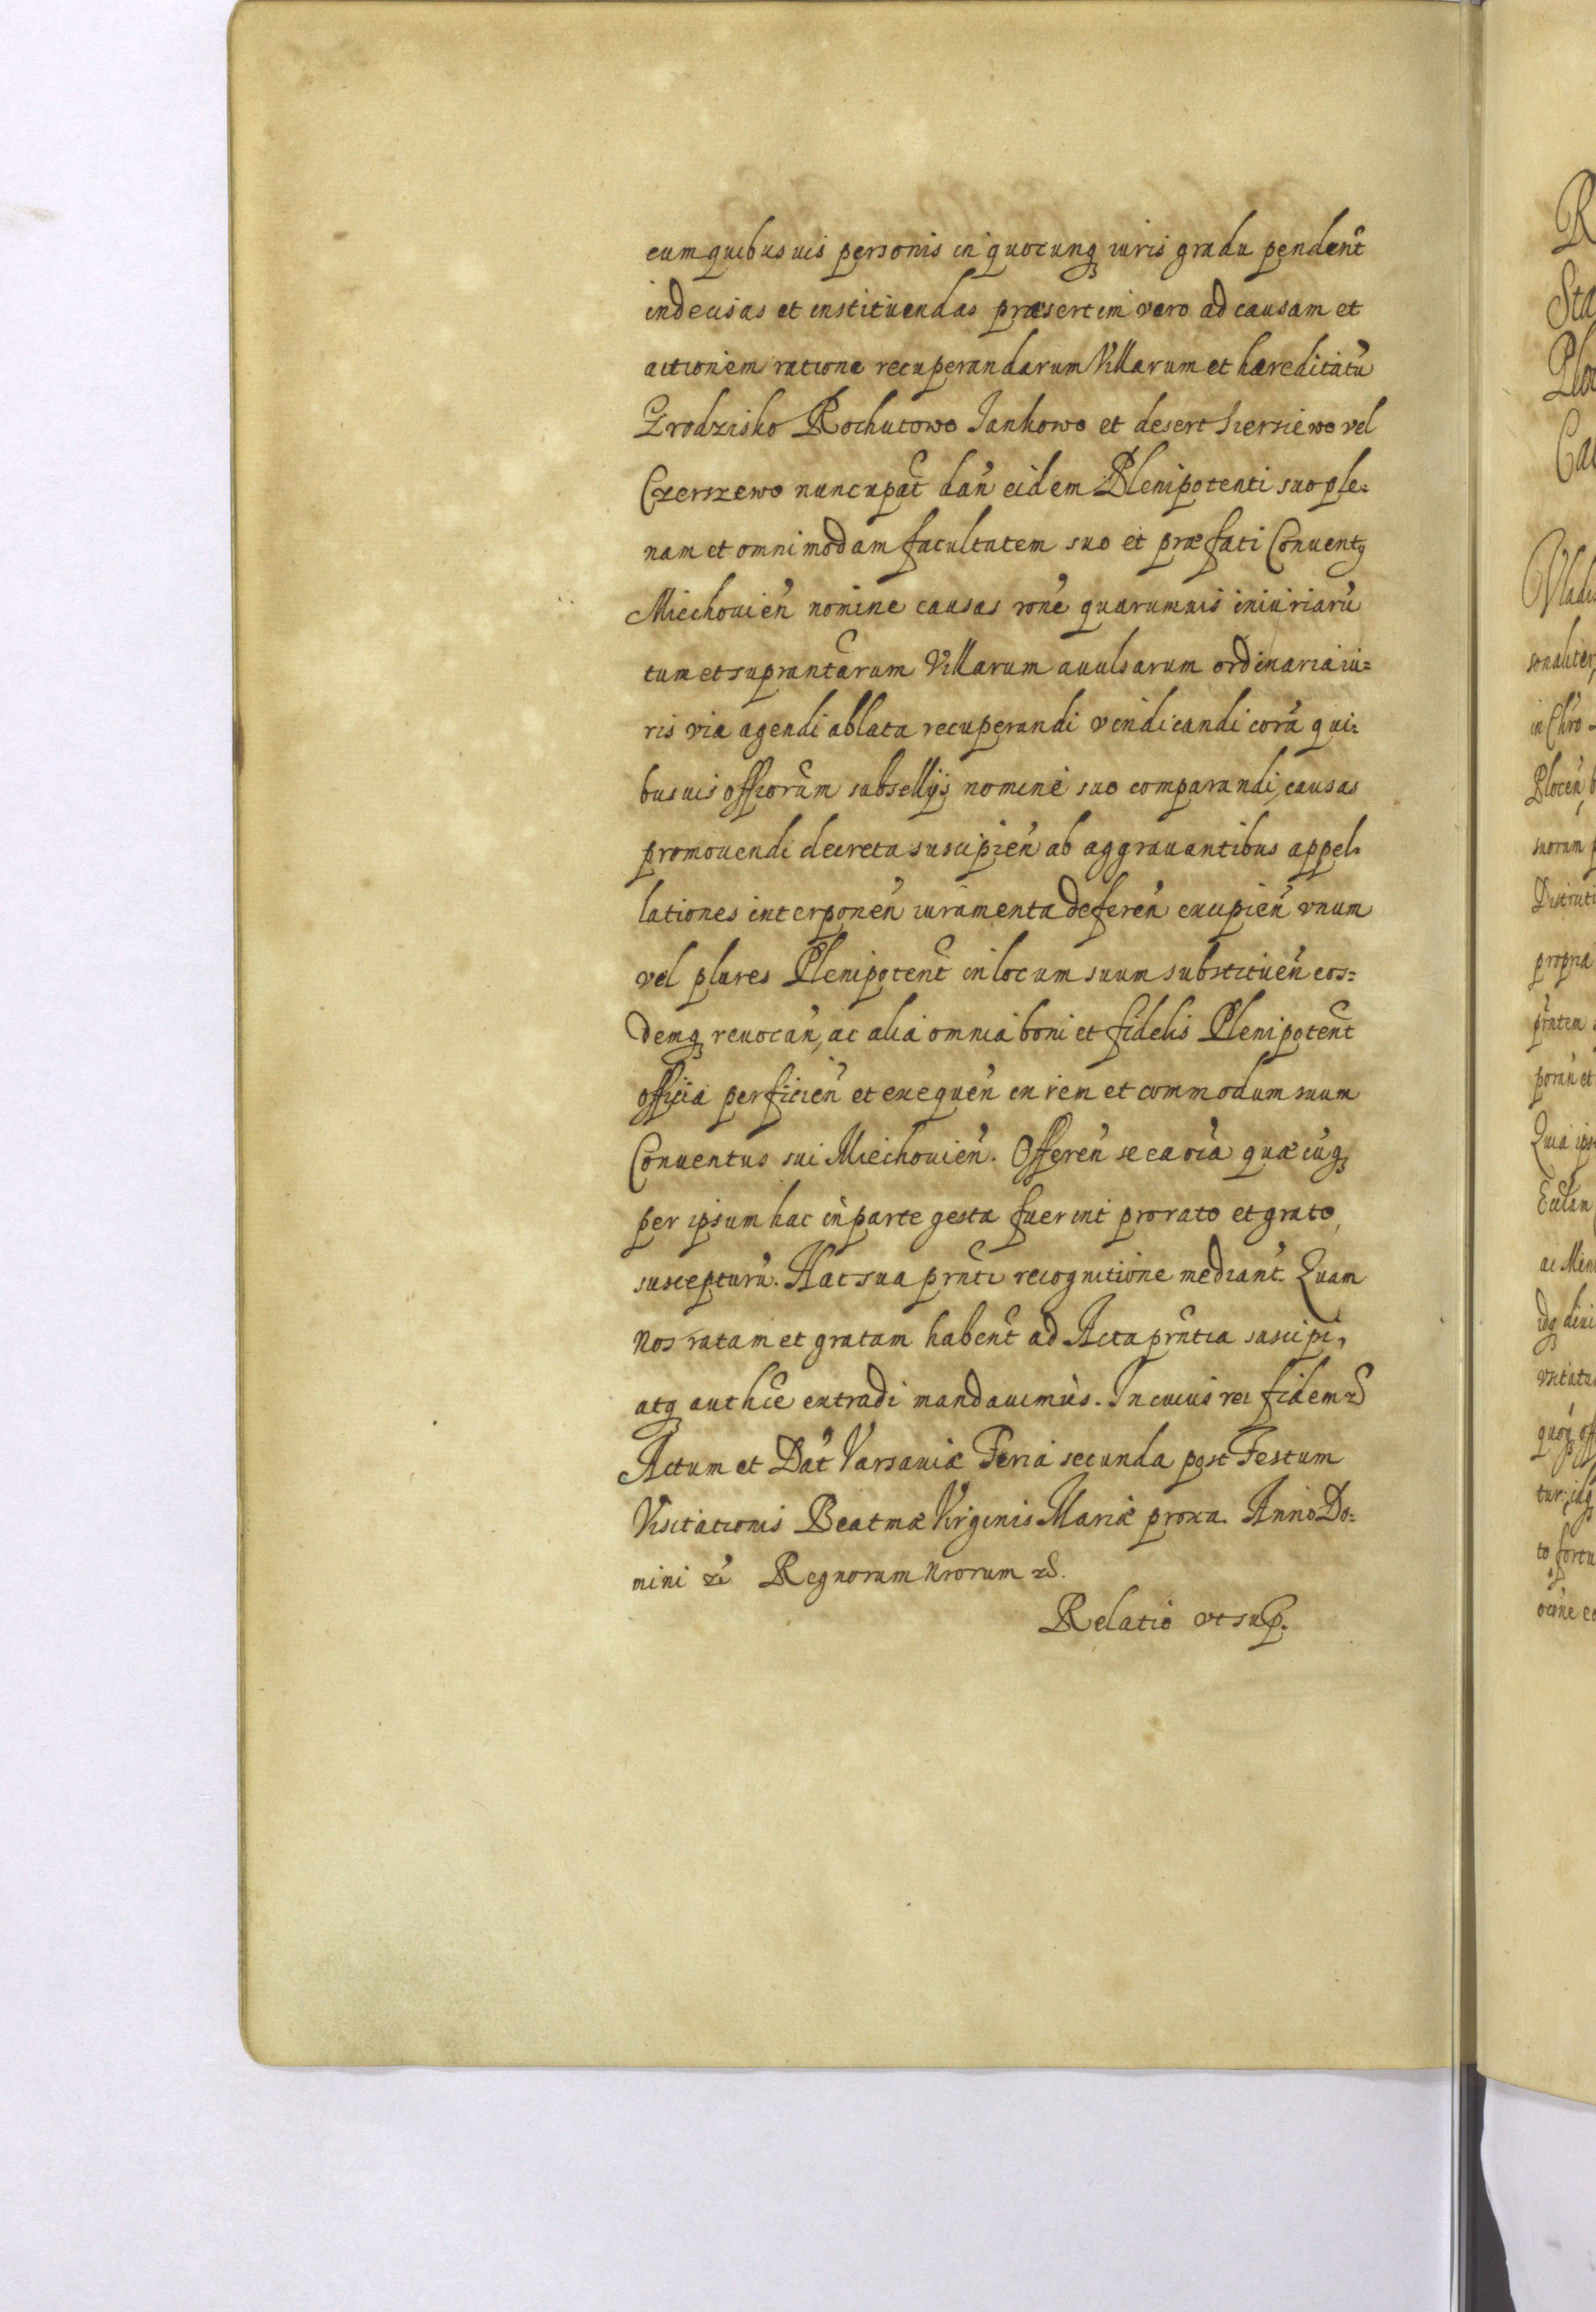 cum quibusuis personis in quocunq iuris gradu pendent
indecisas et instituendas præsertim vero ad causam et
actionem ratione recuperandarum Villarum et hæreditatu
Grodzisko Rochutowo Jankowo et desert Sierszewo vel
Czerszewo nuncupat dan eidem Plenipotenti suo ple:
nam et omnimodam facultatem suo et præfati Conuentq
Miechouien nomine causas rone quarumuis iniuriaru
tum et suprantarum Villarum auulsarum ordinaria iu=
ris via agendi ablata recuperandi vendicandi cora qui:
busuis officiorum subsellijs nomine suo comparandi, causas
promouendi decreta suscipien ab aggrauantibus appel:
lationes interponen iuramenta deferen excipien vnum
vel plures Plenipotent in locum suum substituen eos=
demq reuocan, ac alia omnia boni et fidelis Plenipotent
officia perficien et exequen in rem et commodum suum
Conuentus sui Miechouien. Offeren se ea oia quæcuq
per ipsum hac in parte gesta fuerint pro rato et grato
suscepturu. Hac sua prnti recognitione mediant. Quam
Nos ratam et gratam habent ad Acta prntia suscipi,
atq authce extradi mandauimus. In cuius rei fidem &
Actum et Dat Varsauiæ Feria secunda post Festum
Visitationis Beatmæ Virginis Mariæ proxa. Anno Do:
mini &c Regnorum Nrorum &.
Relatio vt sup.